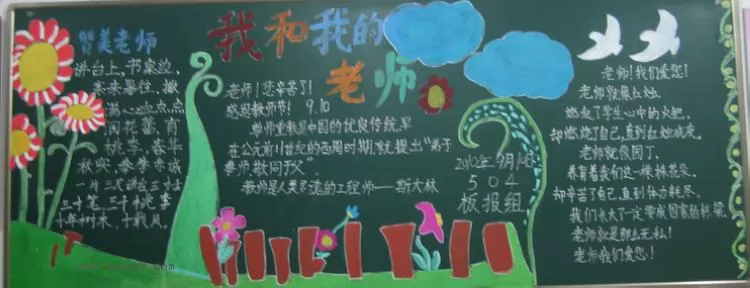 我和我的
老师
赞美老师
讲台上,书桌边,
寒来暑往,撒
满心血点点
润花蕾,育
桃李,春华
秋实,拳拳赤诚
一片三尺讲台三寸舌
三寸笔三千桃李
十年树木,十载风。
老师!您辛苦了!
感恩教师节! 9.10
尊师重教是中国的优良传统,早
在公元前11世纪的西周时期,就提出“弟子
事师,敬同于父”
教师是人类灵魂的工程师——斯大林
2010年9月10日
504
板报组
老师!我们爱您!
老师就像红烛,
燃起了学生心中的火把,
却燃烧了自己,直到红烛成灰。
老师就像园丁,
养育着我们这一棵棵花朵,
却辛苦了自己,直到体力耗尽。
我们长大了一定要成国家的栋梁。
老师就是那么无私!
老师我们爱您!